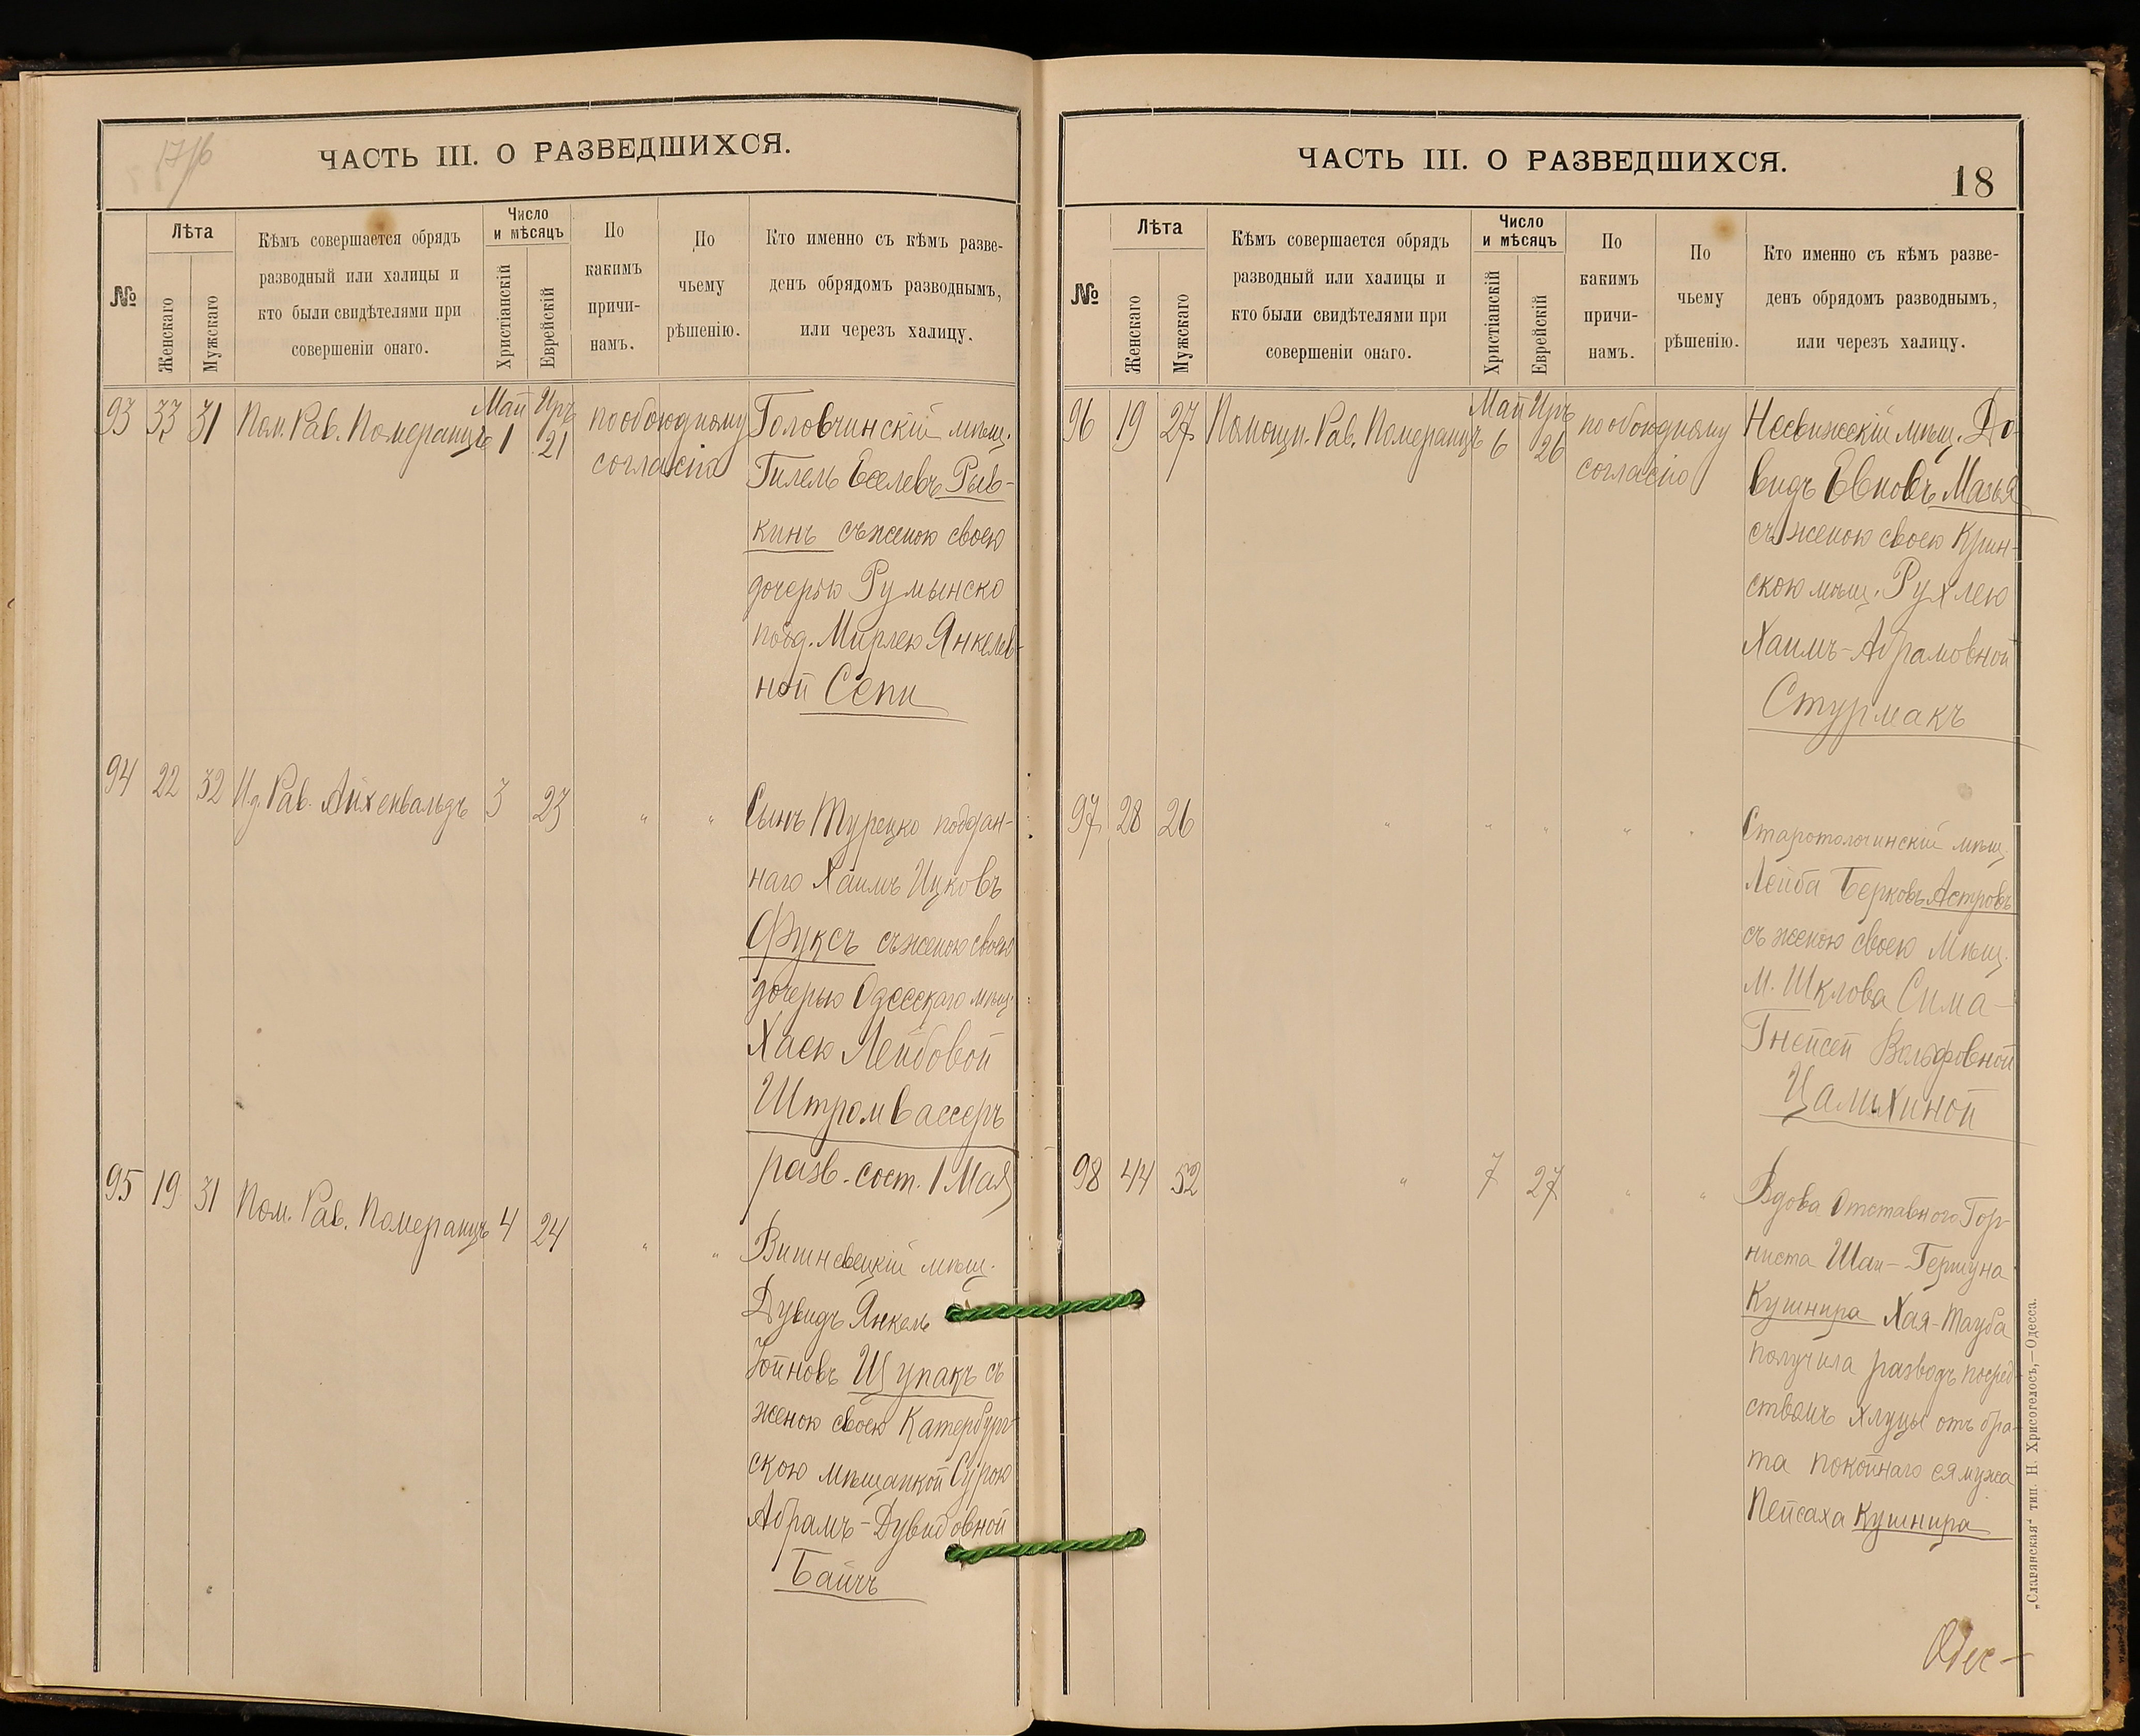 17/6
ЧАСТЬ III. О РАЗВЕДШИХСЯ.
№
Лѣта
Женскаго
Мужскаго
Кѣмъ совершается обрядъ
разводный или халицы и
кто были свидѣтелями при
совершеніи онаго.
Число
и мѣсяцъ
Христіанскій
Еврейскій
По
какимъ
причи-
намъ.
По
чьему
рѣшенію.
Кто именно съ кѣмъ разве-
денъ обрядомъ разводнымъ,
или черезъ халицу.
93 33 31 Пом. Рав. Померанцъ Май 1 Иръ 21 по обоюдному
согласію
Головчинскій мѣщ.
Гилель Еселевъ Рыв-
кинъ съ женою своею
дочерью Румынско
подд. Мирлею Янкелев-
ной Сепи
94 22 32 И.д. Рав. Айхенвальдъ 3 23 " "
Сынъ Турецко поддан-
наго Хаимъ Ицковъ
Фуксъ съ женою своею
дочерью Одесскаго мѣщ.
Хаею Лейбовой
Штромвассеръ
разв. сост. 1 Мая
95 19 31 Пом. Рав. Померанцъ 4 24 " "
Вишневецкій мѣщ.
Дувидъ Янкель
Іойновъ Щупакъ съ
женою своею Катербург-
скою мѣщанкой Сурою
Абрамъ-Дувидовной
Байчъ
ЧАСТЬ III. О РАЗВЕДШИХСЯ.
18
№
Лѣта
Женскаго
Мужскаго
Кѣмъ совершается обрядъ
разводный или халицы и
кто были свидѣтелями при
совершеніи онаго.
Число
и мѣсяцъ
Христіанскій
Еврейскій
По
какимъ
причи-
намъ.
По
чьему
рѣшенію.
Кто именно съ кѣмъ разве-
денъ обрядомъ разводнымъ,
или черезъ халицу.
96 19 27 Помощн. Рав. Померанцъ Май 6 Иръ 26 по обоюдному
согласію
Несвижскій мѣщ. До-
видъ Евновъ Мазья
съ женою своею Крин-
скою мѣщ. Рухлею
Хаимъ-Абрамовной
Стурмакъ
97 28 26 " " " " "
Старотолочинскій мѣщ.
Лейба Берковъ Астровъ
съ женою своею Мѣщ.
М. Шклова Сима-
Гнейсей Вольфовной
Цалихиной
98 44 52 " 7 27 " "
Вдова Отставного Гор-
ниста Шаи-Гершуна
Кушнира Хая-Тауба
получила разводъ посред-
ствомъ хлуцы отъ бра-
та покойнаго ея мужа
Пейсаха Кушнира
Одес-
„Славянская“ тип. Н. Хрисогелосъ,—Одесса.